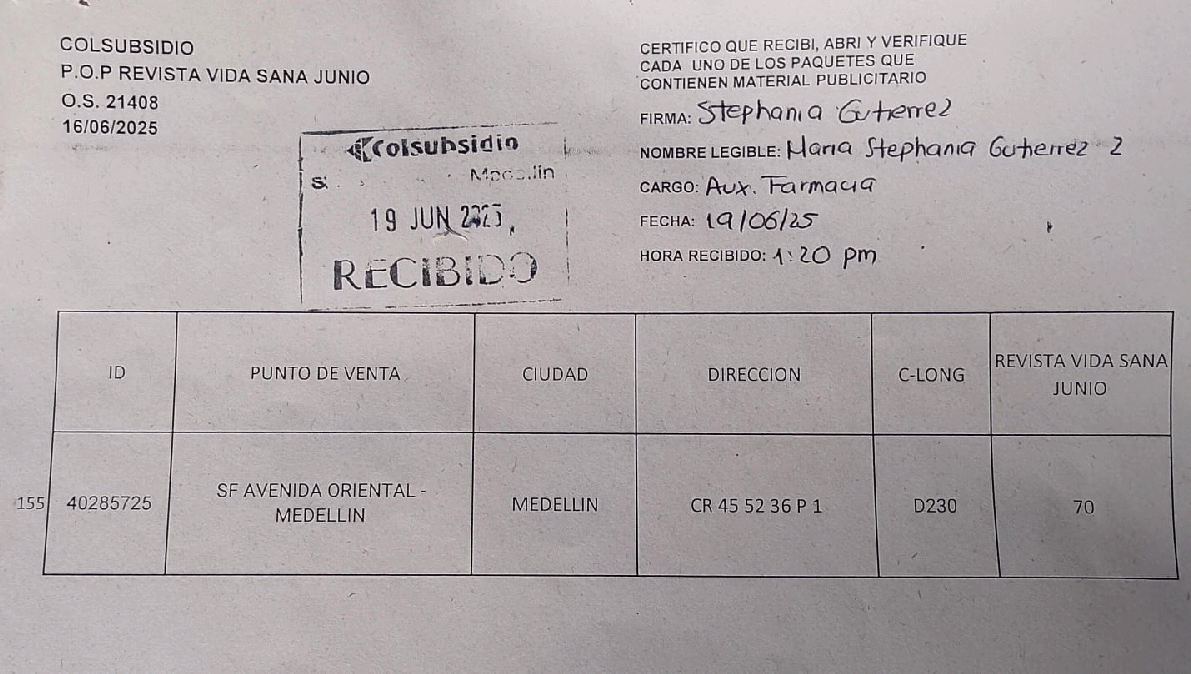 COLSUBSIDIO
P.O.P REVISTA VIDA SANA JUNIO
O.S. 21408
16/06/2025
CERTIFICO QUE RECIBI, ABRI Y VERIFIQUE
CADA UNO DE LOS PAQUETES QUE
CONTIENEN MATERIAL PUBLICITARIO
FIRMA: Stephania Gutierrez
NOMBRE LEGIBLE: Maria Stephania Gutierrez Z
CARGO: Aux. Farmacia
FECHA: 19/06/25
HORA RECIBIDO: 1:20 pm
Colsubsidio
Medellin
19 JUN 2025
RECIBIDO
ID
PUNTO DE VENTA
CIUDAD
DIRECCION
C-LONG
REVISTA VIDA SANA
JUNIO
155
40285725
SF AVENIDA ORIENTAL -
MEDELLIN
MEDELLIN
CR 45 52 36 P 1
D230
70